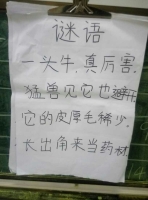 谜语
一头牛,真厉害,
猛兽见它也避开
它的皮厚毛稀少,
长出角来当药材